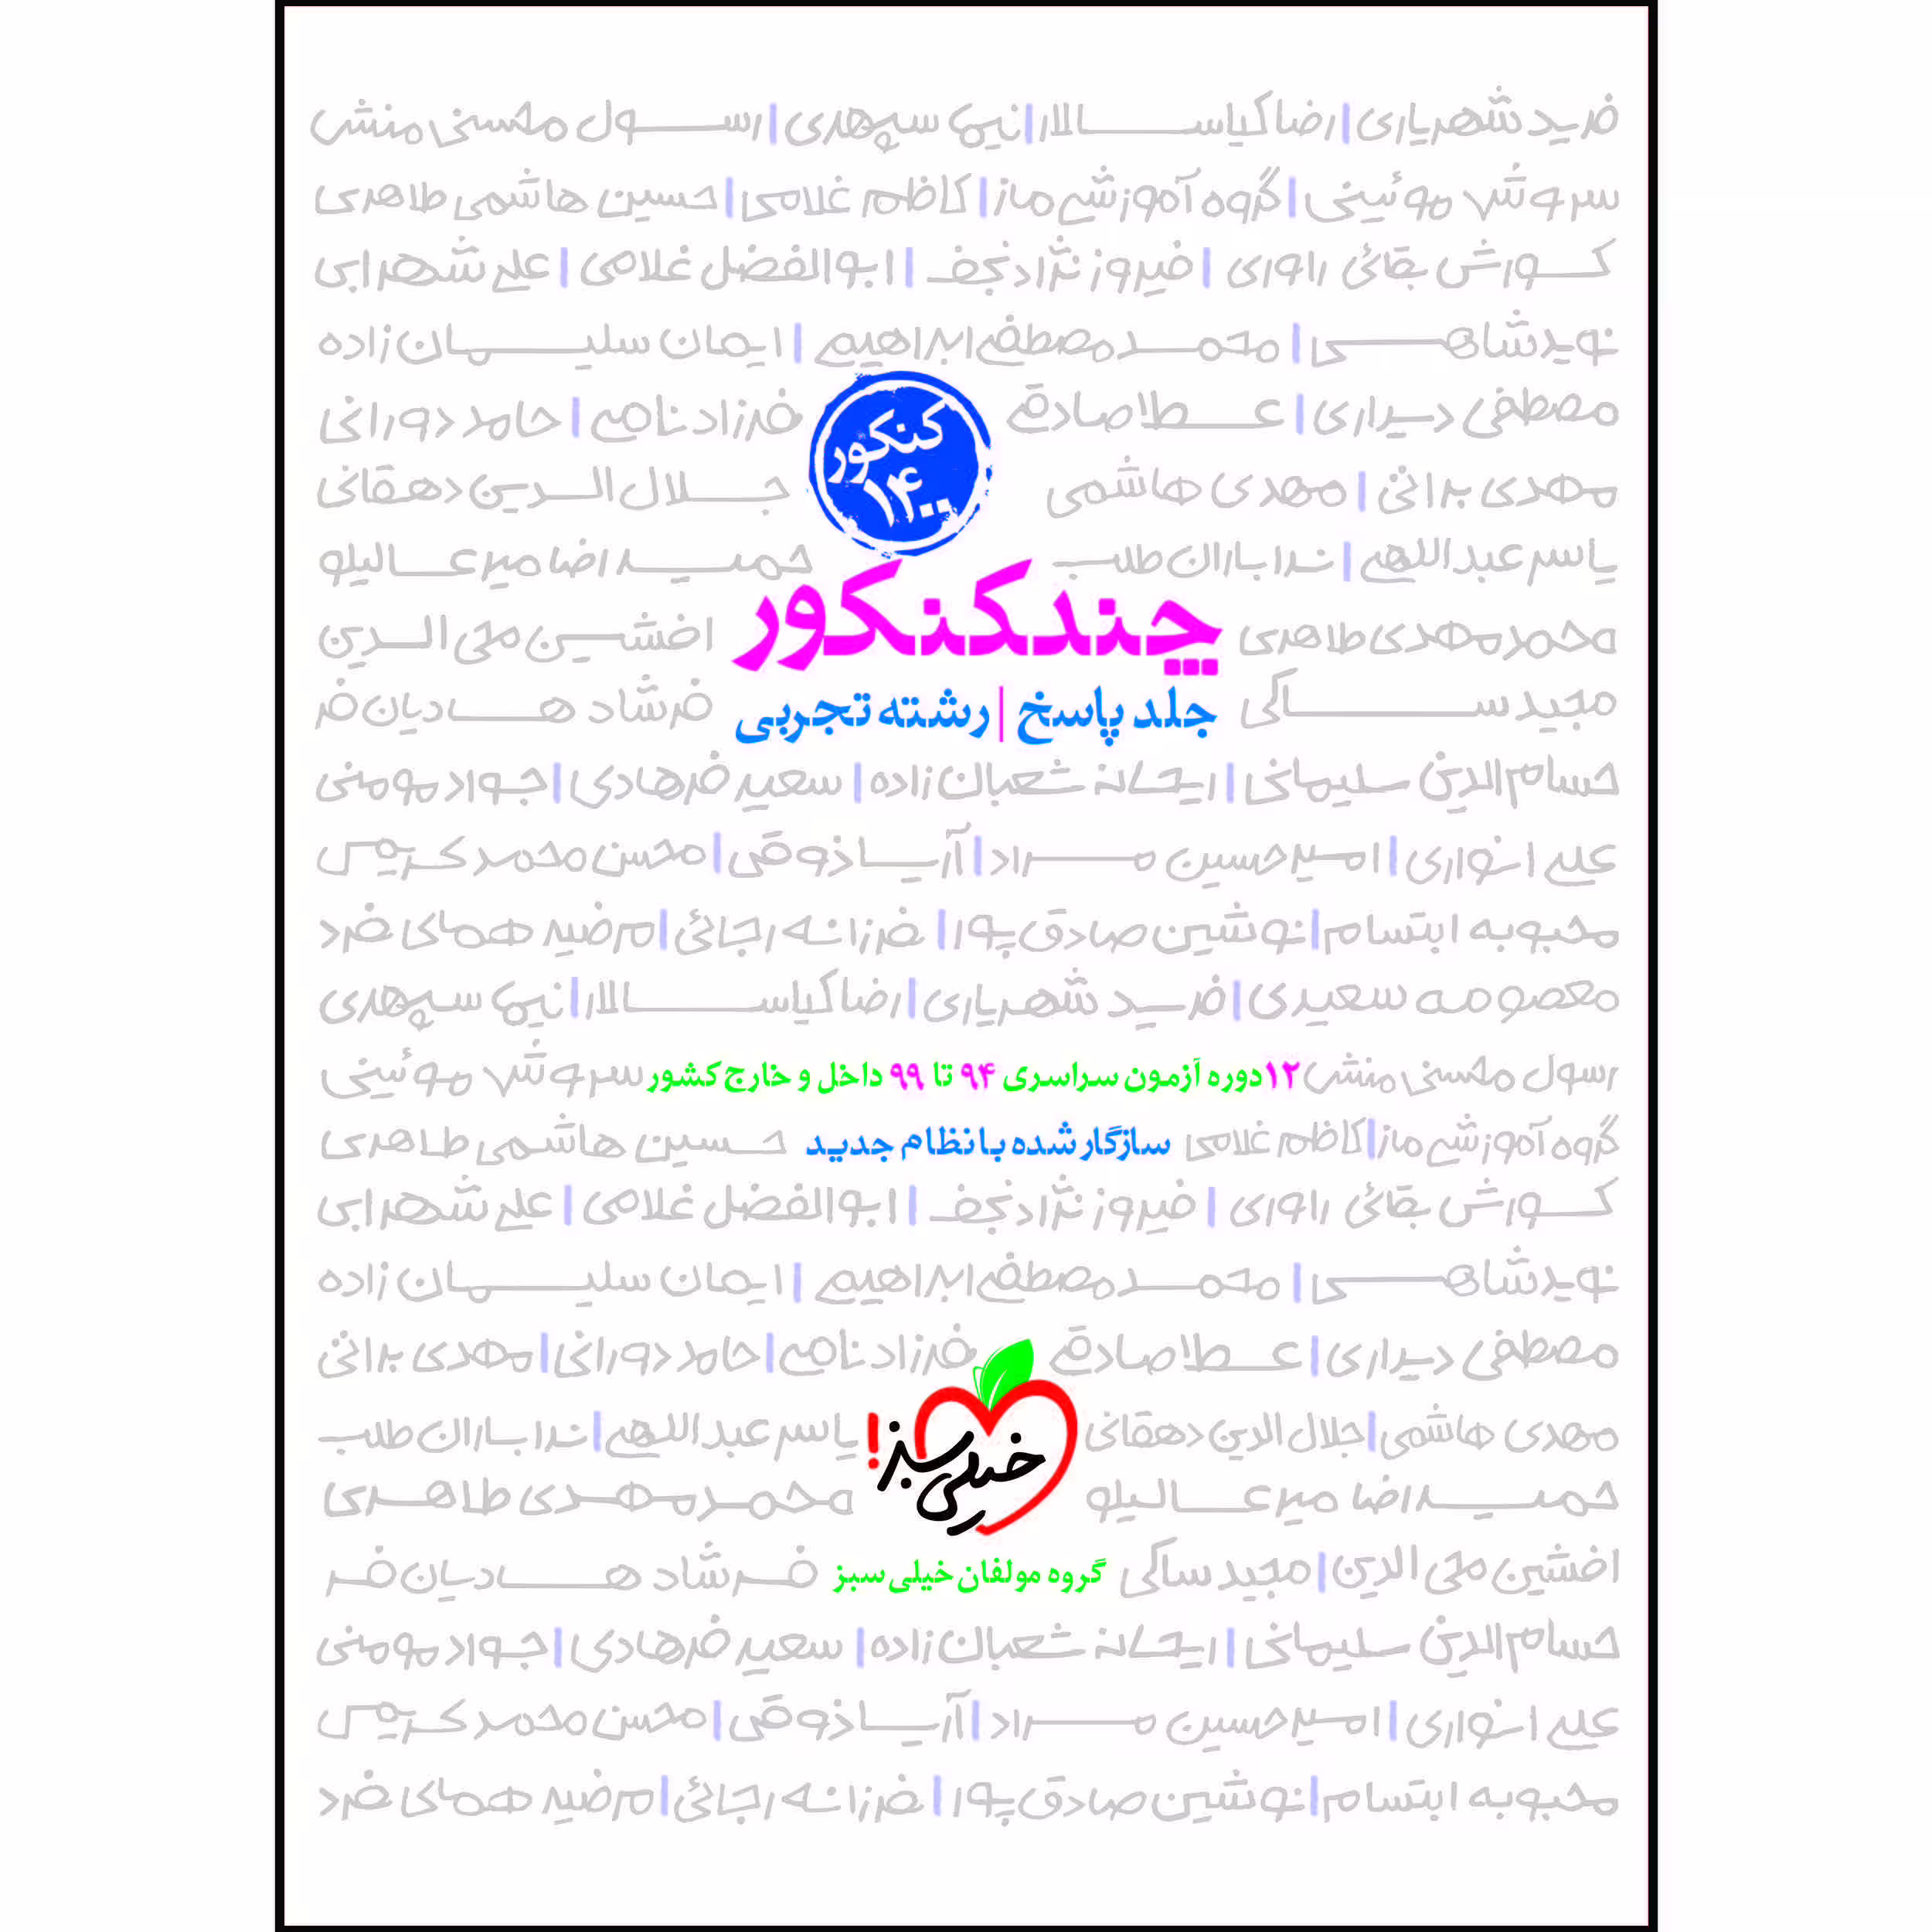 فرید شهریاری | رضا کیاسالار | نیما سپهری | رسول محسنی منش
سروش موئینی | گروه آموزشی ماز | کاظم غلامی | حسین هاشمی طاهری
کورش بقائی راوری | فیروز نژادنجف | ابوالفضل غلامی | علی شهرابی
نوید شاهی | محمد مصطفی ابراهیمی | ایمان سلیمان زاده
مصطفی دیداری | عطا صادقی فرزاد نامی | حامد دورانی
مهدی براتی | مهدی هاشمی جلال الدین دهقانی
کنکور
۱۴۰۰
یاسر عبداللهی | ندا باران طلب حمیدرضا میرعالیلو
چند کنکور
محمدمهدی طاهری افشین محی الدین
مجید ساکی فرشاد هادیان فر
جلد پاسخ | رشته تجربی
حسام الدین سلیمانی | ریحانه شعبان زاده | سعید فرهادی | جواد مومنی
علی انواری | امیرحسین مراد | آریا ذوقی | محسن محمدکریمی
محبوبه ابتسام | نوشین صادق پور | فرزانه رجائی | مرضیه همای فرد
معصومه سعیدی | فرید شهریاری | رضا کیاسالار | نیما سپهری
رسول محسنی منش ۱۲ دوره آزمون سراسری ۹۴ تا ۹۹ داخل و خارج کشور سروش موئینی
گروه آموزشی ماز | کاظم غلامی سازگار شده با نظام جدید حسین هاشمی طاهری
کورش بقائی راوری | فیروز نژادنجف | ابوالفضل غلامی | علی شهرابی
نوید شاهی | محمد مصطفی ابراهیمی | ایمان سلیمان زاده
مصطفی دیداری | عطا صادقی فرزاد نامی | حامد دورانی | مهدی براتی
مهدی هاشمی | جلال الدین دهقانی خیلی سبز! یاسر عبداللهی | ندا باران طلب
حمیدرضا میرعالیلو محمدمهدی طاهری
افشین محی الدین | مجید ساکی گروه مولفان خیلی سبز فرشاد هادیان فر
حسام الدین سلیمانی | ریحانه شعبان زاده | سعید فرهادی | جواد مومنی
علی انواری | امیرحسین مراد | آریا ذوقی | محسن محمدکریمی
محبوبه ابتسام | نوشین صادق پور | فرزانه رجائی | مرضیه همای فرد